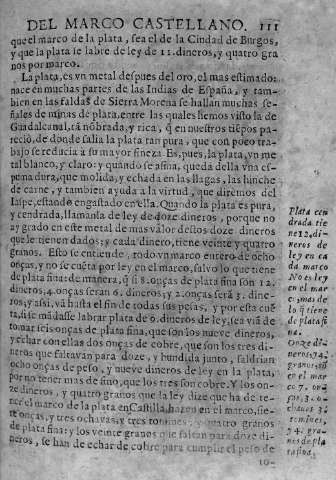 DEL MARCO CASTELLANO. 111
que el marco de la plata, sea el de la Ciudad de Burgos,
y que la plata se labre de ley de 11. dineros, y quatro gra
nos por marco.
La plata, es vn metal despues del oro, el mas estimado:
nace en muchas partes de las Indias de España, y tam-
bien en las faldas de Sierra Morena se hallan muchas se-
ñales de minas de plata, entre las quales hemos visto la de
Guadalcanal, tã nõbrada, y rica, q̃ en nuestros tiẽpos pa-
reciò, de donde salia la plata tan pura, que con poco tra-
bajo se reducia à su mayor fineza. Es, pues, la plata, vn me
tal blanco, y claro: y quando se afina, queda della vna es-
puma dura, que molida, y echada en las llagas, las hinche
de carne, y tambien ayuda à la virtud, que diremos del
Iaspe, estando engastado en ella. Quando la plata es pura,
y cendrada, llamanla de ley de doze dineros, porque no
ay grado en este metal de mas valor destos doze dineros
que le tienen dados: y cada dinero, tiene veinte y quatro
granos. Esto se entiende, todo vn marco entero de ocho
onças, y no se cuẽta por ley en el marco, salvo lo que tiene
de plata fina: de manera, q̃ si 8. onças de plata fina son 12.
dineros, 4. onças seràn 6. dineros, y 2. onças serà 3. dine-
ros; y assi, và hasta el fin de todas sus pesas, y por esta cuẽ
ta, si se mãdasse labrar plata de 9. dineros de ley, sea viã de
tomar seis onças de plata fina, que son los nueve dineros,
y echar con ellas dos onças de cobre, que son los tres di-
neros que faltavan para doze, y hundida junto, saldrian
ocho onças de peso, y nueve dineros de ley en la plata,
por no tener mas de fino, que los tres son cobre. Y los on-
ze dineros, y quatro granos que la ley dize que ha de te-
ner el marco de la plata en Castilla, hazen en el marco, sie-
te onças, y tres ochavas, y tres tomines, y quatro granos
de plata fina: y los veinte granos que faltan para doze di-
neros, se han de echar de cobre para cumplir el peso de
Plata cen
drada tie
ne 12. di-
neros de
ley en ca
da marco
No es ley
en el mar
co, mas de
lo q̃ tiene
de plata fi
na.
Onze di-
neros, y 4.
granos, sõ
en el mar
co 7. on-
ças, 3. o-
chavas 3.
tomines,
y 4. gra-
nos de pla
ta fina.